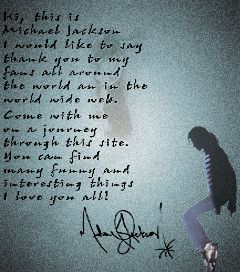 Hi, this is
Michael Jackson
I would like to say
thank you to my
fans all around
the world an in the
world wide web.
Come with me
on a journey
through this site.
You can find
many funny and
interesting things
I love you all!